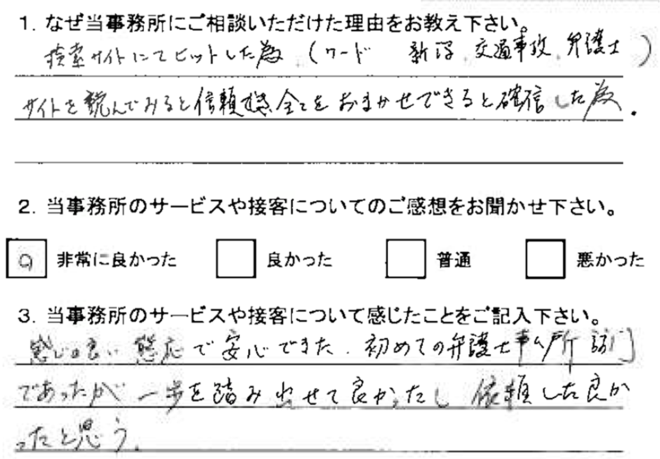 1. なぜ当事務所にご相談いただけた理由をお教え下さい。
検索サイトにてヒットした為 (ワード 新潟、交通事故、弁護士)
サイトを読んでみると信頼 全てをおまかせできると確信した為.
2. 当事務所のサービスや接客についてのご感想をお聞かせ下さい。
非常に良かった 良かった 普通 悪かった
3. 当事務所のサービスや接客について感じたことをご記入下さい。
感じの良い 態応で安心できた. 初めての弁護士事ム所訪門
であったが 一歩を踏み出せて良かったし 依頼した良か
ったと思う.